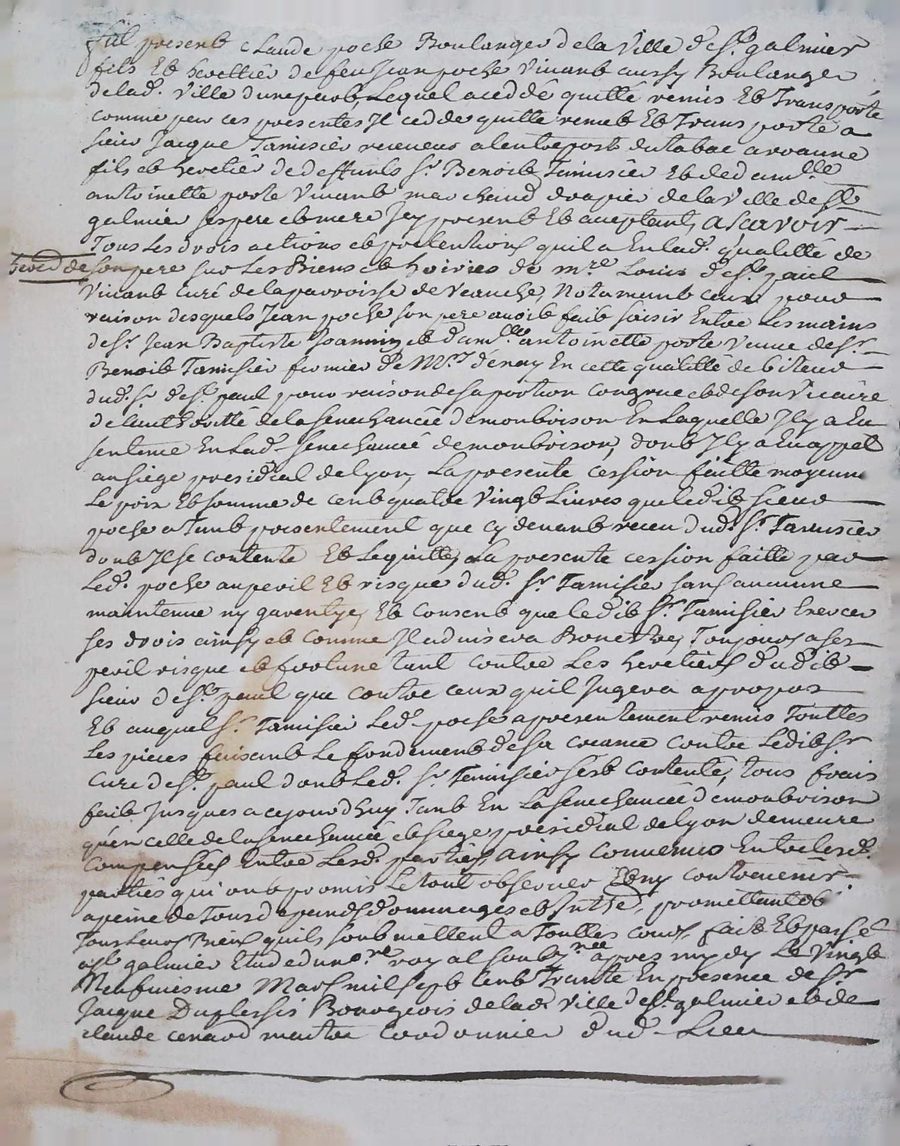 fut present Claude poche Boulanger de la Ville de st. galmier
fils Et herettier de feu Jean poche Vivant aussy Boulanger
de lad. Ville d'une part, Lequel a ceddé quitté remis Et Transporté
comme par ces presentes Il cedde quitte remet Et Transporte a
sieur Jacque Tamisier receveur a lentrepost du tabac a roanne
fils et heretier de deffunts sr. Benoit Tamisier Et de dam.lle
antoinette porte Vivant marchand drapier de la Ville de st
galmier ses pere et mere Icy present Et acceptant, a scavoir
Tous Les drois actions et pretentions quil a En lad. qualitté de
hered. de son pere sur Les Biens et hoiries de mre. Louis de st. paul
Vivant Curé de la parroisse de Veauche, Notament Ceux pour
raison desquels Jean poche son pere avoit fait saisir Entre Les mains
de sr. Jean Baptiste Joannin et dam.lle antoinette porte Veuve de sr.
Benoit Tamisier fermier de Mr. denay En cette qualitté debiteur
dud. sr. de st. paul pour raison de sa portion congrue et de son Vicaire
de lauthoritté de la senechaucée de monbrison En Laquelle Il y a Eu
sentence En Lad. senechaucée de monbrison, dont Il y a Eu appel
au siege presidial de lyon, La presente cession faitte moyenn.
Le prix Et somme de cent quatre Vingt Livres que ledit sieur
poche a Tant presentement que cy devant receu dud. sr. Tamisier
dont Il se contente Et Le quitte, La presente cession faitte par
Led. poche au peril Et risque dud. sr. Tamisier sans aucune
maintenue ny garentye, Et consent que ledit sr. Tamisier Exerce
ses drois ainsy et comme Il advisera Bon Estre, Toujours a ses
peril risque et fortune tant contre Les heretiers dudit
sieur de st. paul que contre ceux quil Jugera a propos
Et auquel sr. Tamisier Led. poche a presentement remis Touttes
Les pieces faisant Le fondement de sa creance contre Ledit sr
Curé de st. paul dont Led. sr. Tamisier sest contenté, tous frais
fait Jusques a ce jourd'huy Tant En La senechaucée de monbrison
qu'en celle de la senechaucée et siege presidial de lyon demeure
Compensés Entre Lesd. parties, ainsy convenus Entre lesd.
parties qui ont promis Le tout observer Et ny contrevenir
a peine de Tous depends dommages et Inthé., promettant et
Tous Leurs Biens quils soubmettent a Touttes cours fait Et passé
a st. galmier Etude du nre. royal soub.né apres midy Le Vingt
Neufviesme Mars mil sept cent Trante En presence de sr.
Jacque Duplessis Bourgeois de lad. Ville de st. galmier et de
claude cenard maitre Cordonnier dud. Lieu